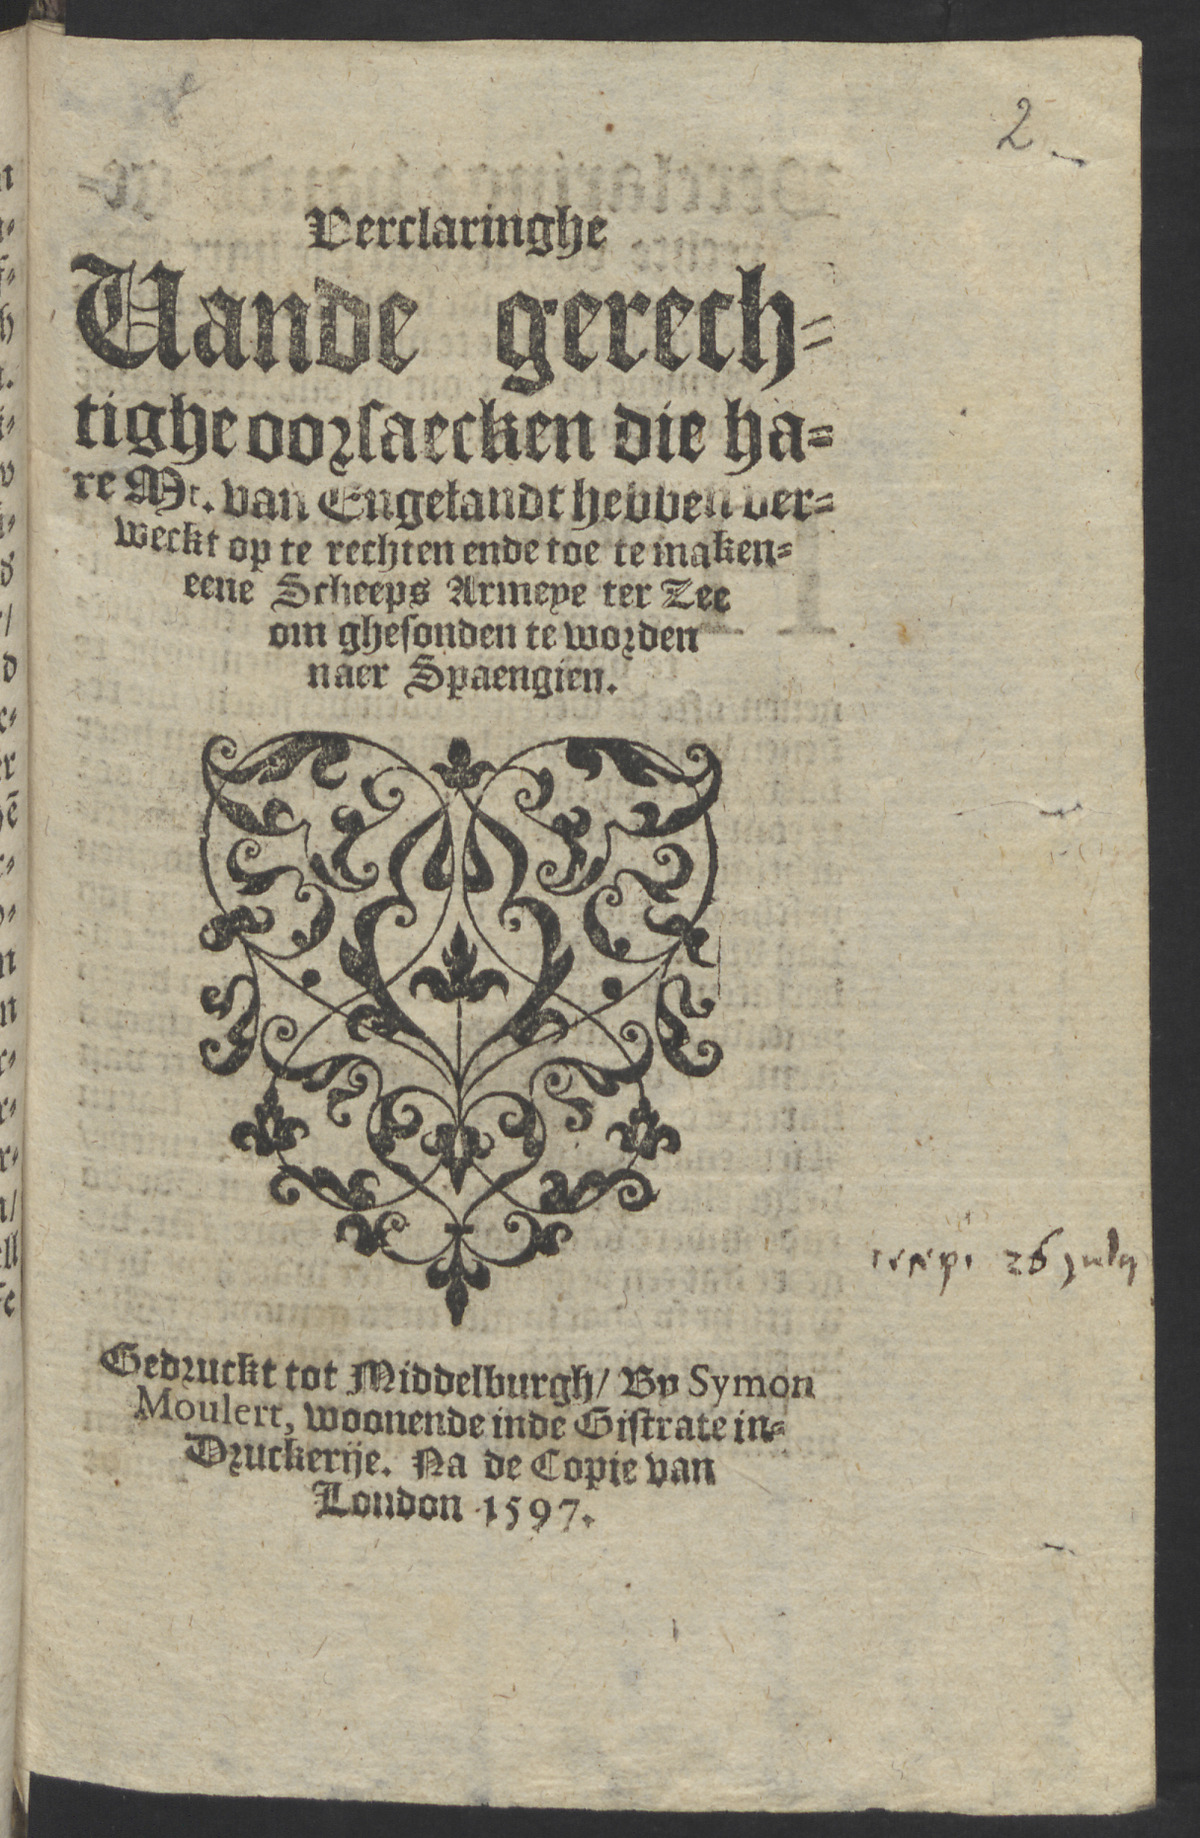 2
Verclaringhe
Vande gerech-
tighe oorsaecken die ha-
re Mt. van Engelandt hebben ver-
weckt op te rechten ende toe te maken-
eene Scheeps Armeye ter Zee
om ghesonden te worden
naer Spaengien.
recep. 26 july
Gedruckt tot Middelburgh/ By Symon
Moulert, woonende inde Gistrate in-
Druckerije. Na de Copie van
London 1597.